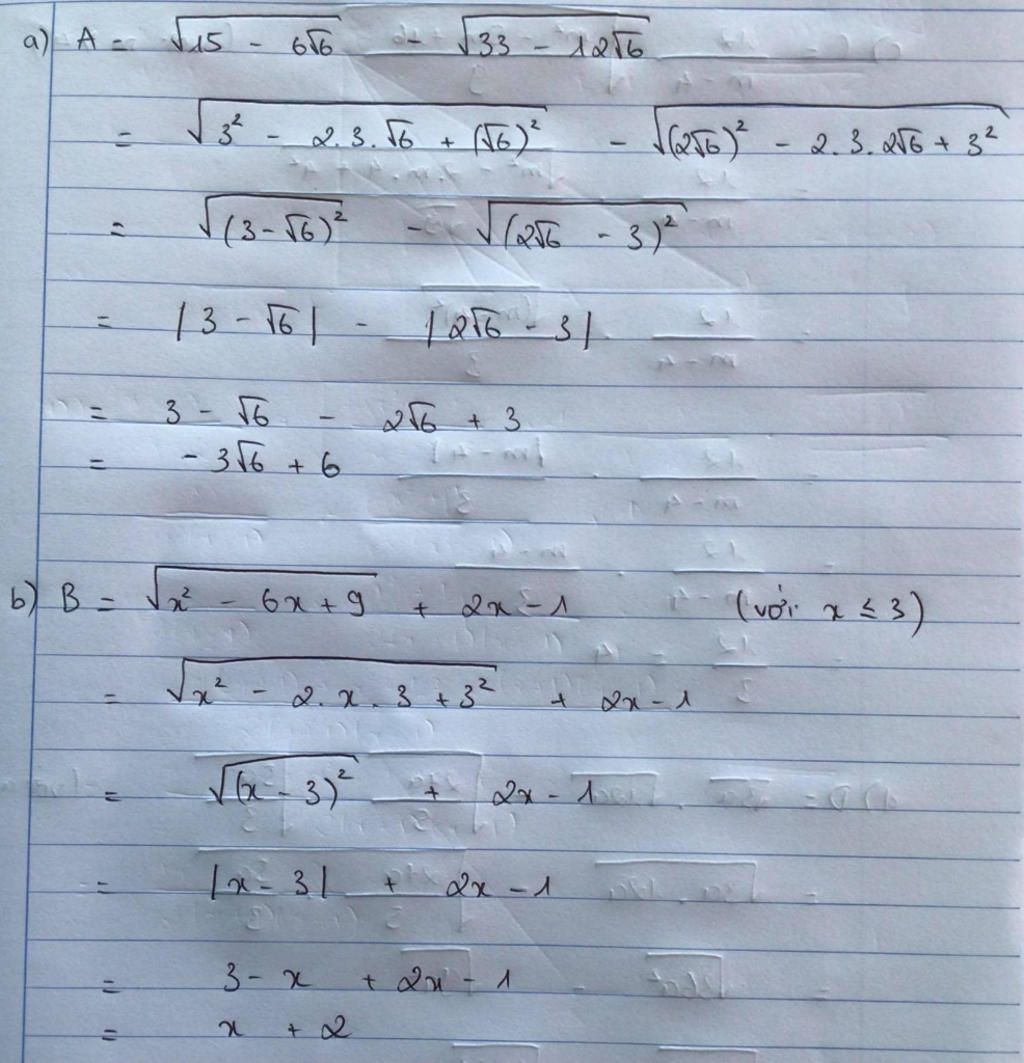 a) A = √(15 - 6√6) - √(33 - 12√6)
= √(3² - 2.3.√6 + (√6)²) - √((2√6)² - 2.3.2√6 + 3²)
= √((3-√6)²) - √((2√6 - 3)²)
= |3 - √6| - |2√6 - 3|
= 3 - √6 - 2√6 + 3
= - 3√6 + 6
b) B = √(x² - 6x + 9) + 2x - 1 (với x ≤ 3)
= √(x² - 2.x.3 + 3²) + 2x - 1
= √((x - 3)²) + 2x - 1
= |x - 3| + 2x - 1
= 3 - x + 2x - 1
= x + 2